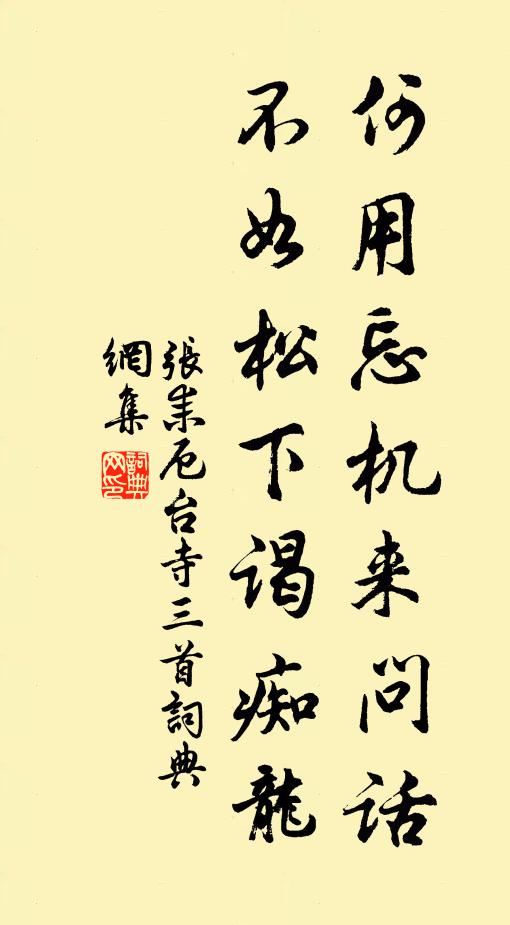 何用忘机来问话
不如松下谒痴龍
張耒厄台寺三首詞典
網集
詞典網印